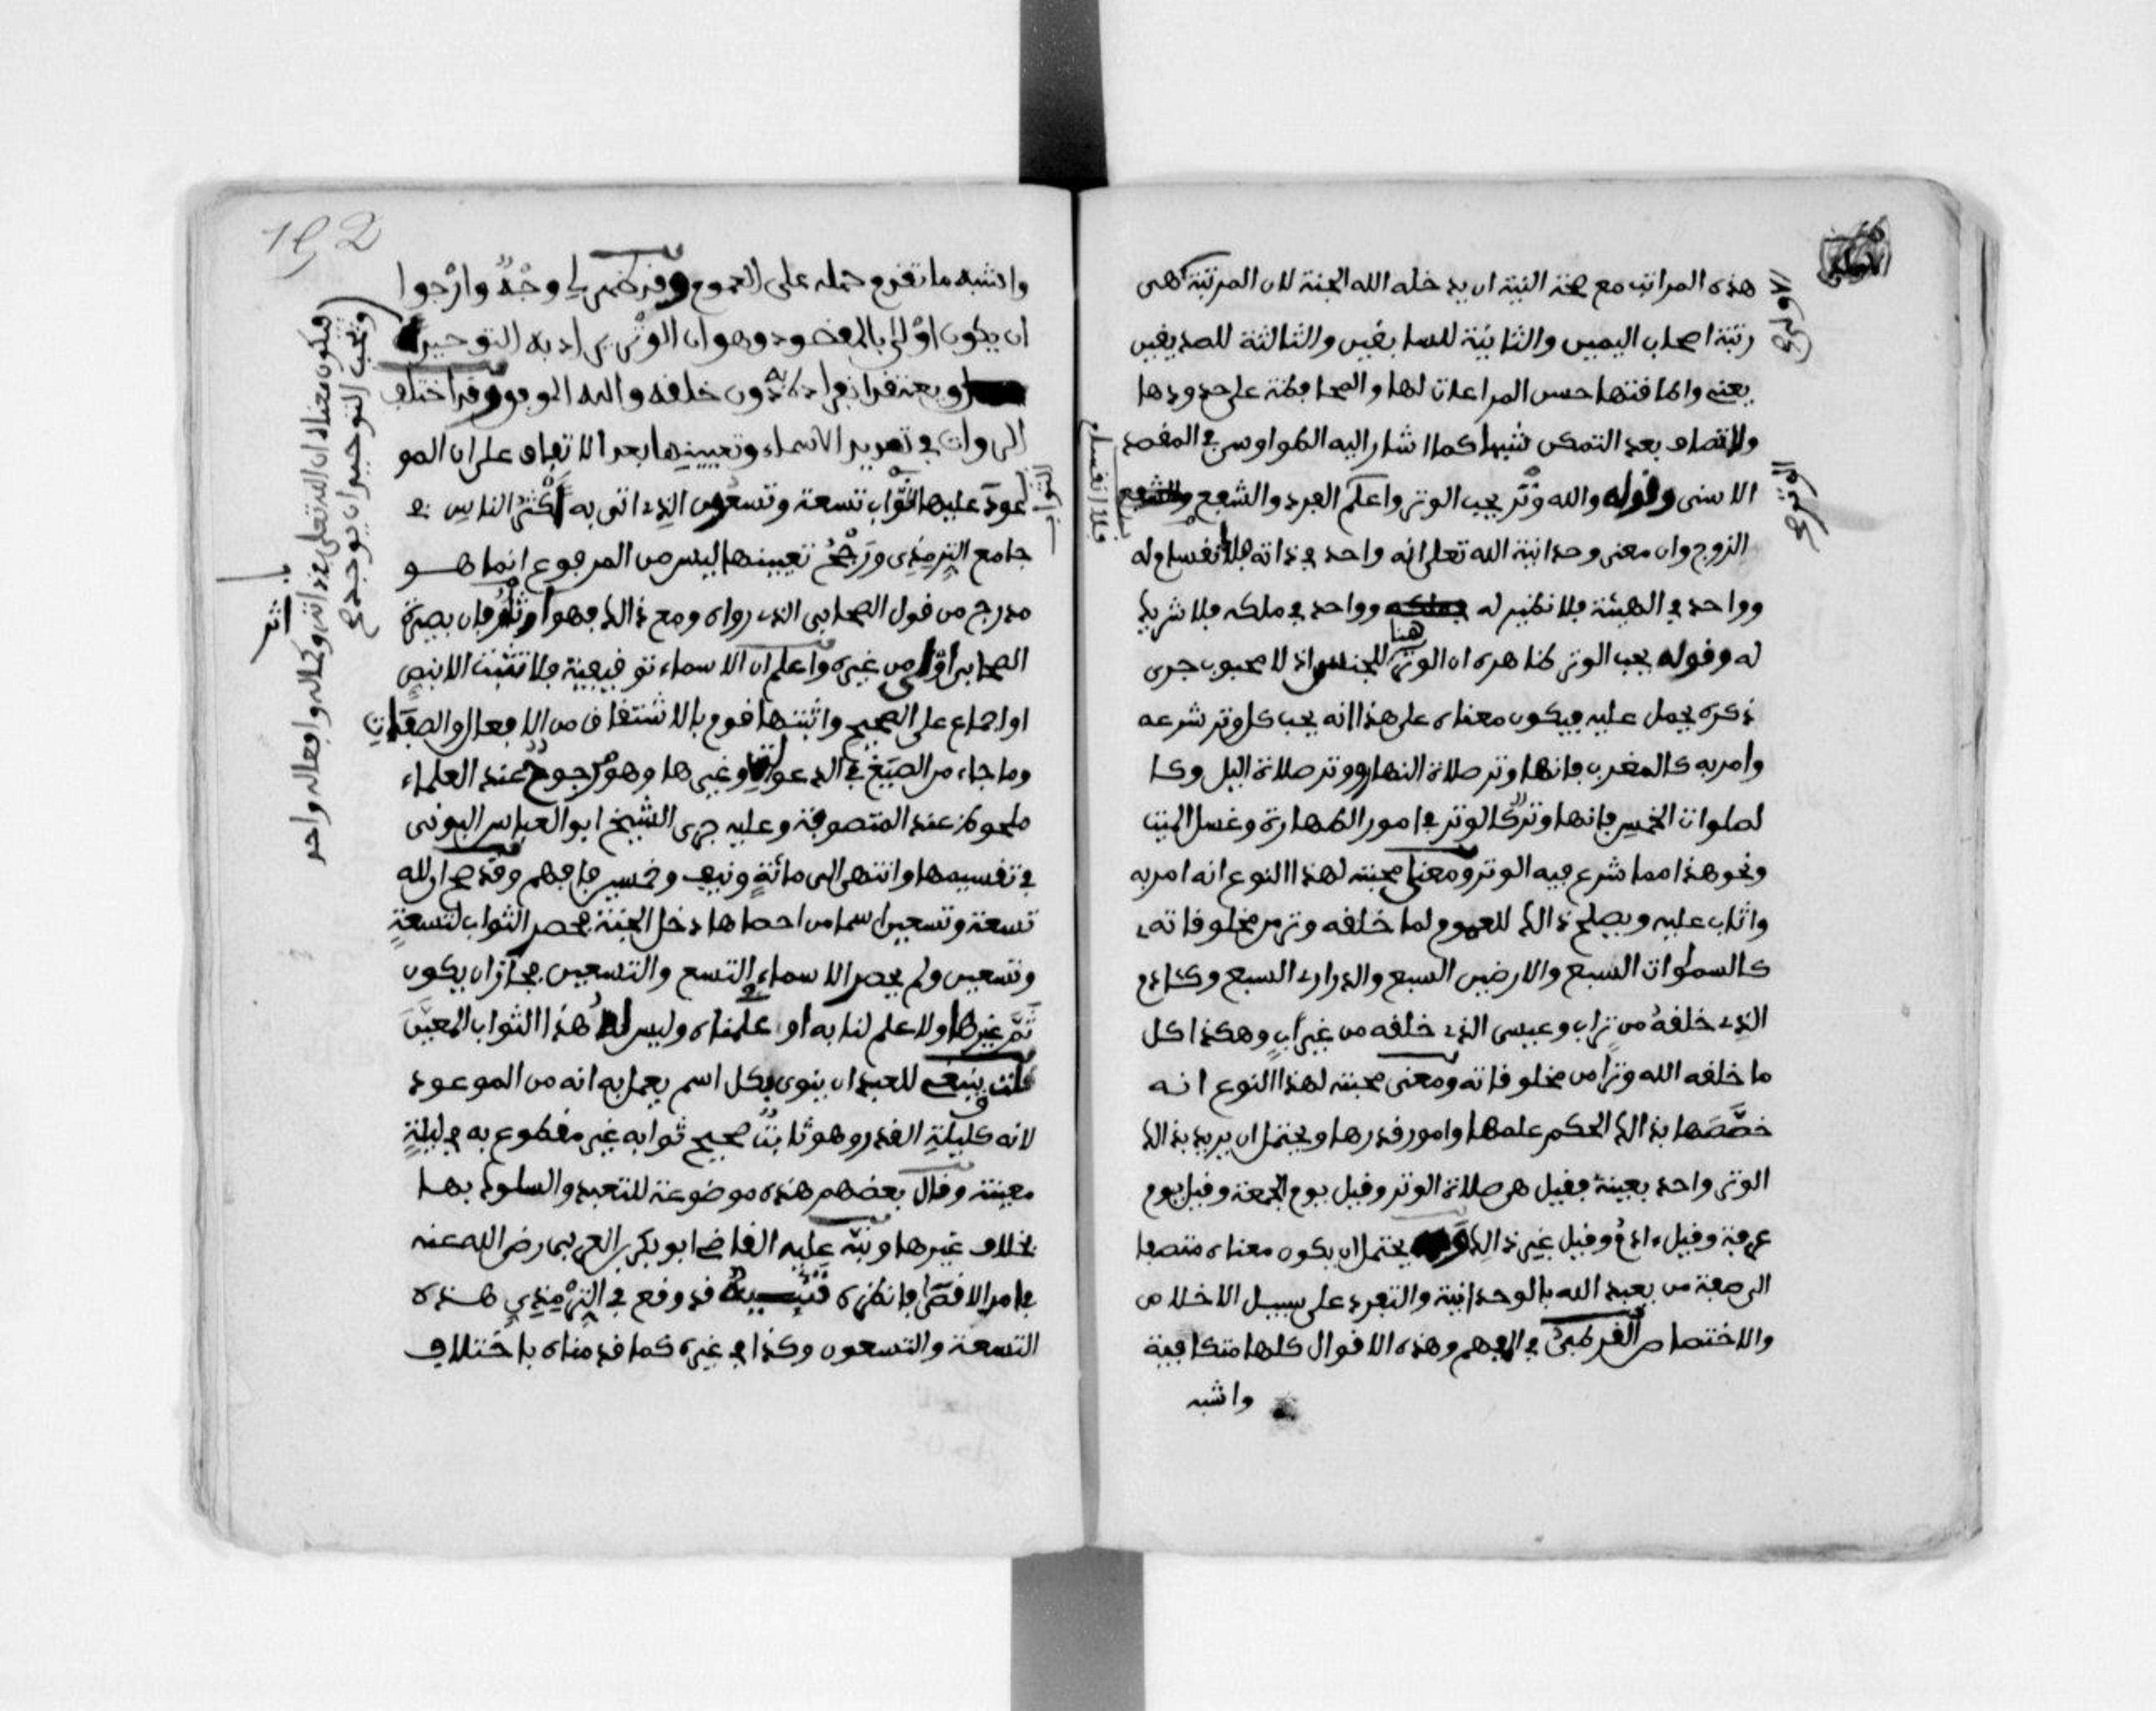 هذه المراتب مع صحة النية ان يدخله الله الجنة لان المرتبة
رتبة اصحاب اليمين والثانية للسابقين والثالثة للصديقين
يعني واطاقتها حسن المراعات لها والمحافظة على حدودها
والاتصاف بعد التمكن شبها كما اشار اليه الطواوسي في المقصد
الاسنى وقوله والله وتر يحب الوتر واعلم الفرد والشفع
الزوج وان معنى وحدانية الله تعلى انه واحد في ذاته فلا انقسام له
وواحد في الهيئة فلا نظير له وواحد في ملكه فلا شريك
له وقوله يحب الوتر ظاهره ان الوتر هنا للجنس اذ لا محبوب جرى
ذكره يحمل عليه فيكون معناه على هذا انه يحب كل وتر شرعه
وامر به كالمغرب فانها وتر صلاة النهار ووتر صلاة اليل وكا
لصلوات الخمس فانها وتر وكالوتر في امور الطهارة وغسل الميت
ونحو هذا مما شرع فيه الوتر ومعنى محبته لهذا النوع انه امر به
واثاب عليه ويصلح ذالك للعموم لما خلقه وتر من مخلوقاته
كالسموات السبع والارضين السبع والدراري السبع وكئادم
الذي خلقه من تراب وعيسى الذي خلقه من غير اب وهكذا كل
ما خلقه الله وترا من مخلوقاته ومعنى محبته لهذا النوع انه
خصصها بذالك لحكم علمها وامور قدرها ويحتمل ان يريد بذالك
الوتر واحد بعينه فقيل هي صلاة الوتر وقيل يوم الجمعة وقيل يوم
عرفة وقيل ءادم وقيل غير ذالك يحتمل ان يكون معناه منصرفا
الى صفة من يعبد الله بالوحدانية والتفرد على سبيل الاخلاص
والاختصاص القرطبي في المفهم وهذه الاقوال كلها متكافية
واشبه
واشبه ما تقدم حمله على العموم وقد ظهر لي وجه وارجوا
ان يكون اولى بالمقصود وهو ان الوتر يراد به التوحيد
بانفراده دون خلقه والله الموفق وقد اختلف
الروات في تعديد الاسماء وتعيينها بعد الاتفاق على ان المو
عود عليها الثواب تسعة وتسعون الذي اتى به اكثر الناس في
جامع الترمذي ورجح تعيينها ليس من المرفوع انما هو
مدرج من قول الصحابي الذي رواه ومع ذالك فهو اوثر فان بصيرة
الصحابي اولى من غيره واعلم ان الاسماء توقيفية فلا تثبت الا بنص
او اجماع على الصحيح واثبتها قوم بالاشتقاق من الافعال والصفات
وما جاء من الصيغ في الدعوات وغيرها وهو مرجوح عند العلماء
ملحوظ عند المتصوفة وعليه جرى الشيخ ابو العباس البوني
في تقسيمها وانتهى الى مائة ونيف وخمسين فافهم وقد صح ان لله
تسعة وتسعين اسما من احصاها دخل الجنة فحصر الثواب لتسعة
وتسعين ولم يحصر الاسماء في التسع والتسعين فجاز ان يكون
ثم غيرها ولا علم لنا به او علمناه وليس له هذا الثواب المعين
قلت ينبغي للعبد ان ينوي بكل اسم يعمل به انه من الموعود
لانه كليلة القدر وهو ثابت صحيح ثوابه غير مقطوع به في ليلة
معينة وقال بعضهم هذه موضوعة للتعبد والسلوك بها
بخلاف غيرها ونبه عليه القاضي ابو بكر بن العربي رضي الله عنه
فانظره تنبيه قد وقع في الترمذي هذه
التسعة والتسعون وكذا في غيره كما قدمناه باختلاف
فيكون معناه ان الله تعلى في ذاته وكماله وافعاله واحد
ويحب التوحيد ان يوحد